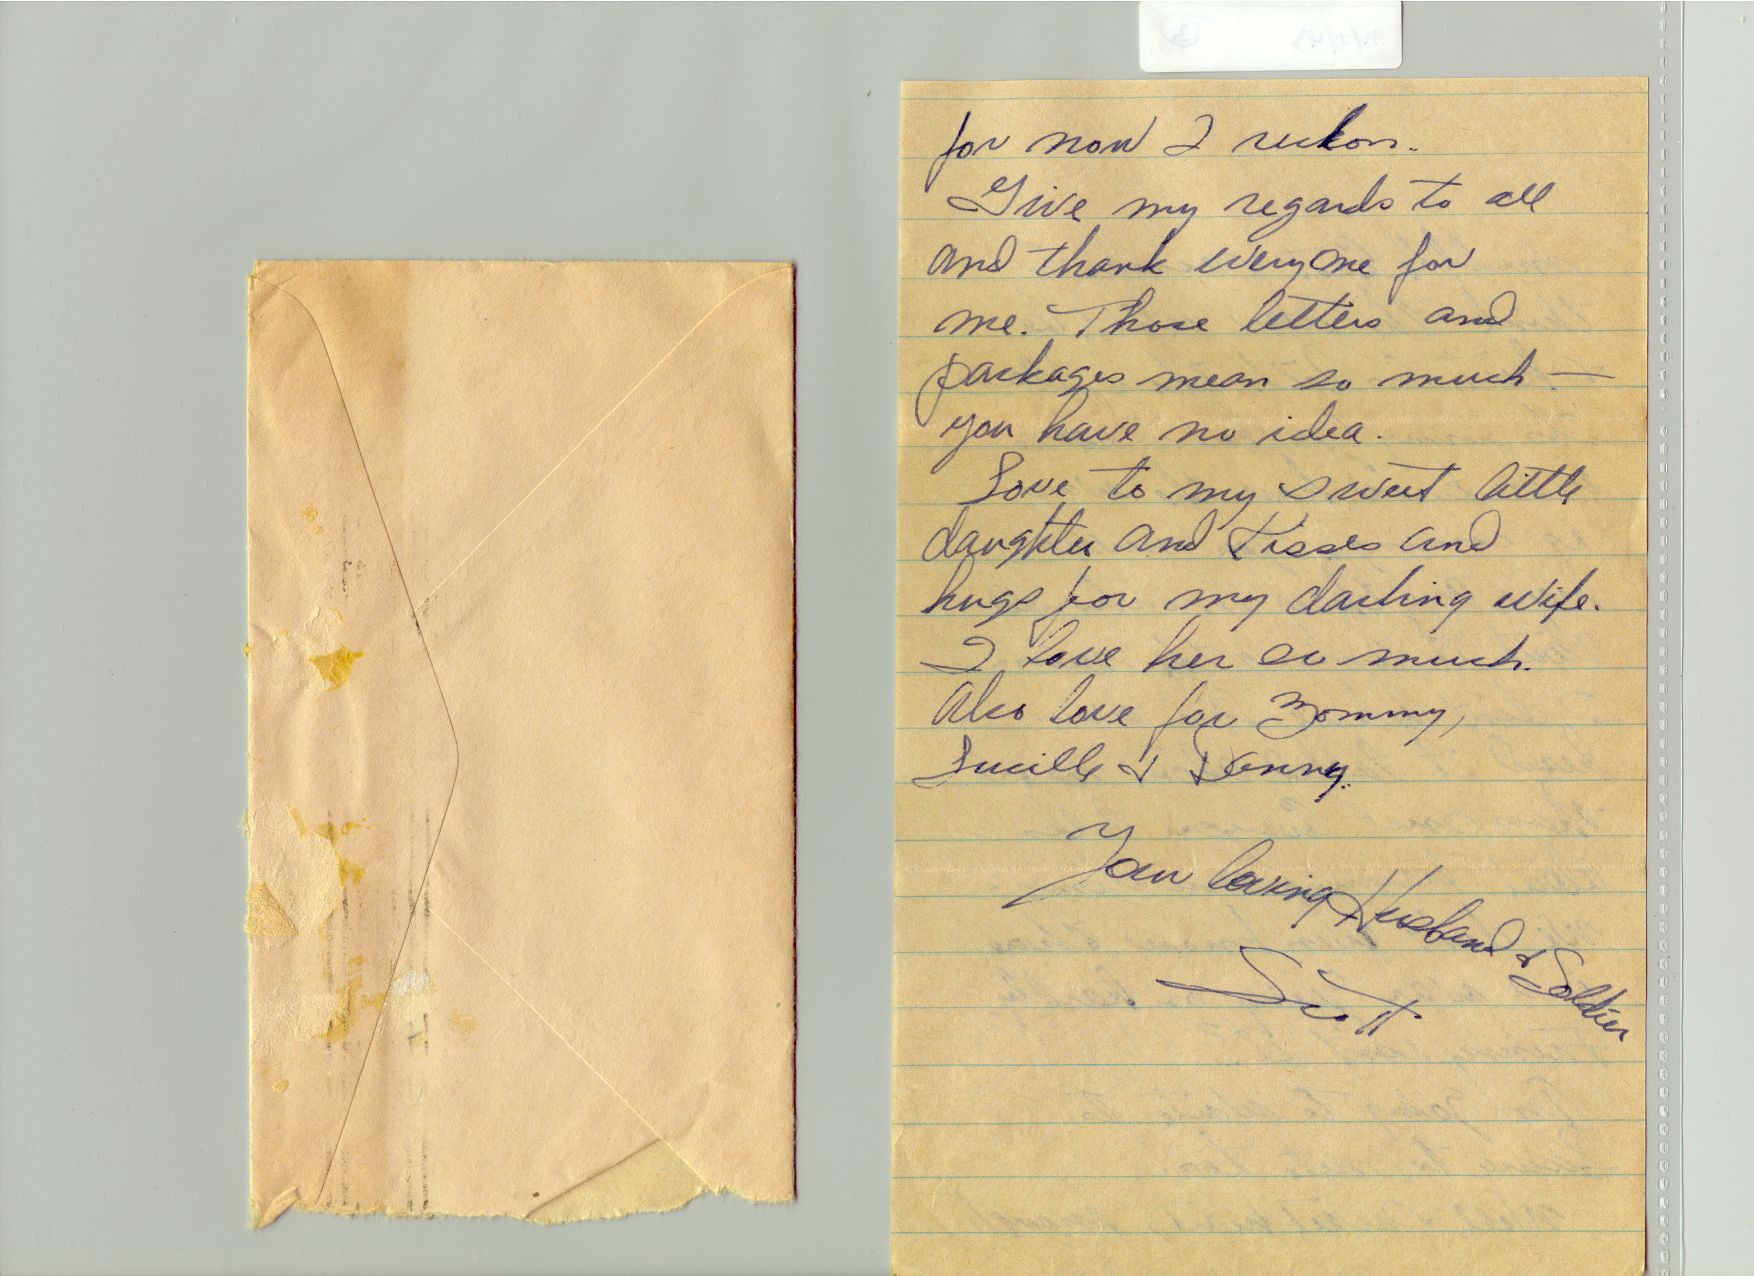 for now I reckon.
Give my regards to all
and thank everyone for
me. Those letters and
packages mean so much —
you have no idea.
Love to my sweet little
daughter and kisses and
hugs for my darling wife.
I love her so much.
Also love for Mommy,
Lucille & Danny.
Your loving Husband & Soldier
Scott